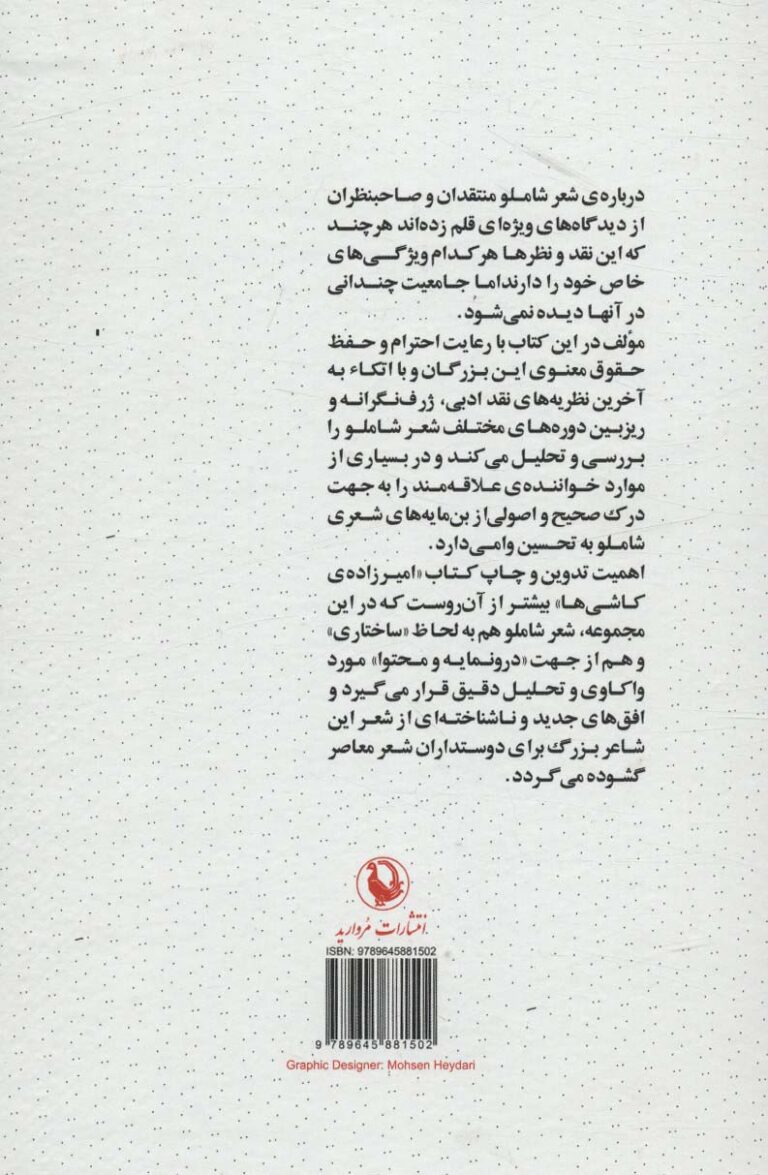 درباره‌ی شعر شاملو منتقدان و صاحبنظران
از دیدگاه‌های ویژه‌ای قلم زده‌اند هرچند
که این نقد و نظرها هرکدام ویژگی‌های
خاص خود را دارنداما جامعیت چندانی
در آنها دیده نمی‌شود.
مؤلف در این کتاب با رعایت احترام و حفظ
حقوق معنوی این بزرگان و با اتکاء به
آخرین نظریه‌های نقد ادبی، ژرف‌نگرانه و
ریزبین دوره‌های مختلف شعر شاملو را
بررسی و تحلیل می‌کند و در بسیاری از
موارد خواننده‌ی علاقه‌مند را به جهت
درک صحیح و اصولی‌از بن‌مایه‌های شعری
شاملو به تحسین وامی‌دارد.
اهمیت تدوین و چاپ کتاب «امیرزاده‌ی
کاشی‌ها» بیشتر از آن‌روست که در این
مجموعه، شعر شاملو هم به لحاظ «ساختاری»
و هم از جهت «درونمایه و محتوا» مورد
واکاوی و تحلیل دقیق قرار می‌گیرد و
افق‌های جدید و ناشناخته‌ای از شعر این
شاعر بزرگ برای دوستداران شعر معاصر
گشوده می‌گردد.
انتشارات مروارید
ISBN: 9789645881502
9 789645 881502
Graphic Designer: Mohsen Heydari